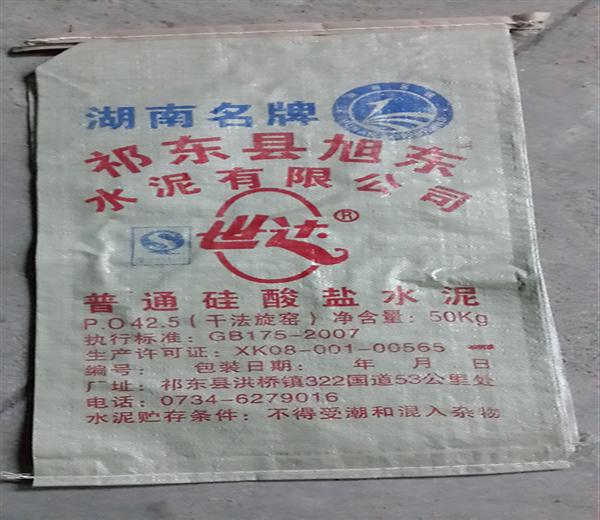 湖南名牌
祁东县旭东
水泥有限公司
世达®
普通硅酸盐水泥
P.O42.5(干法旋窑) 净含量: 50Kg
执行标准: GB175-2007
生产许可证: XK08-001-00565
编号: 包装日期: 年 月 日
厂址: 祁东县洪桥镇322国道53公里处
电话: 0734-6279016
水泥贮存条件: 不得受潮和混入杂物